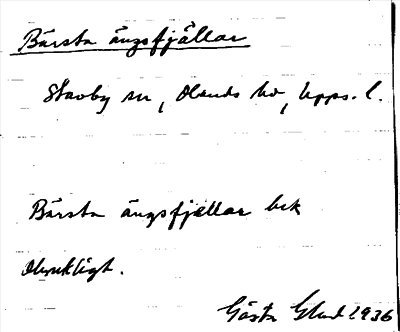 Bärsta ängsfjällar
Stavby sn, Olands hd, Upps. l.
Bärsta ängsfjällar bek
Obrukligt.
Gösta Glad 1936